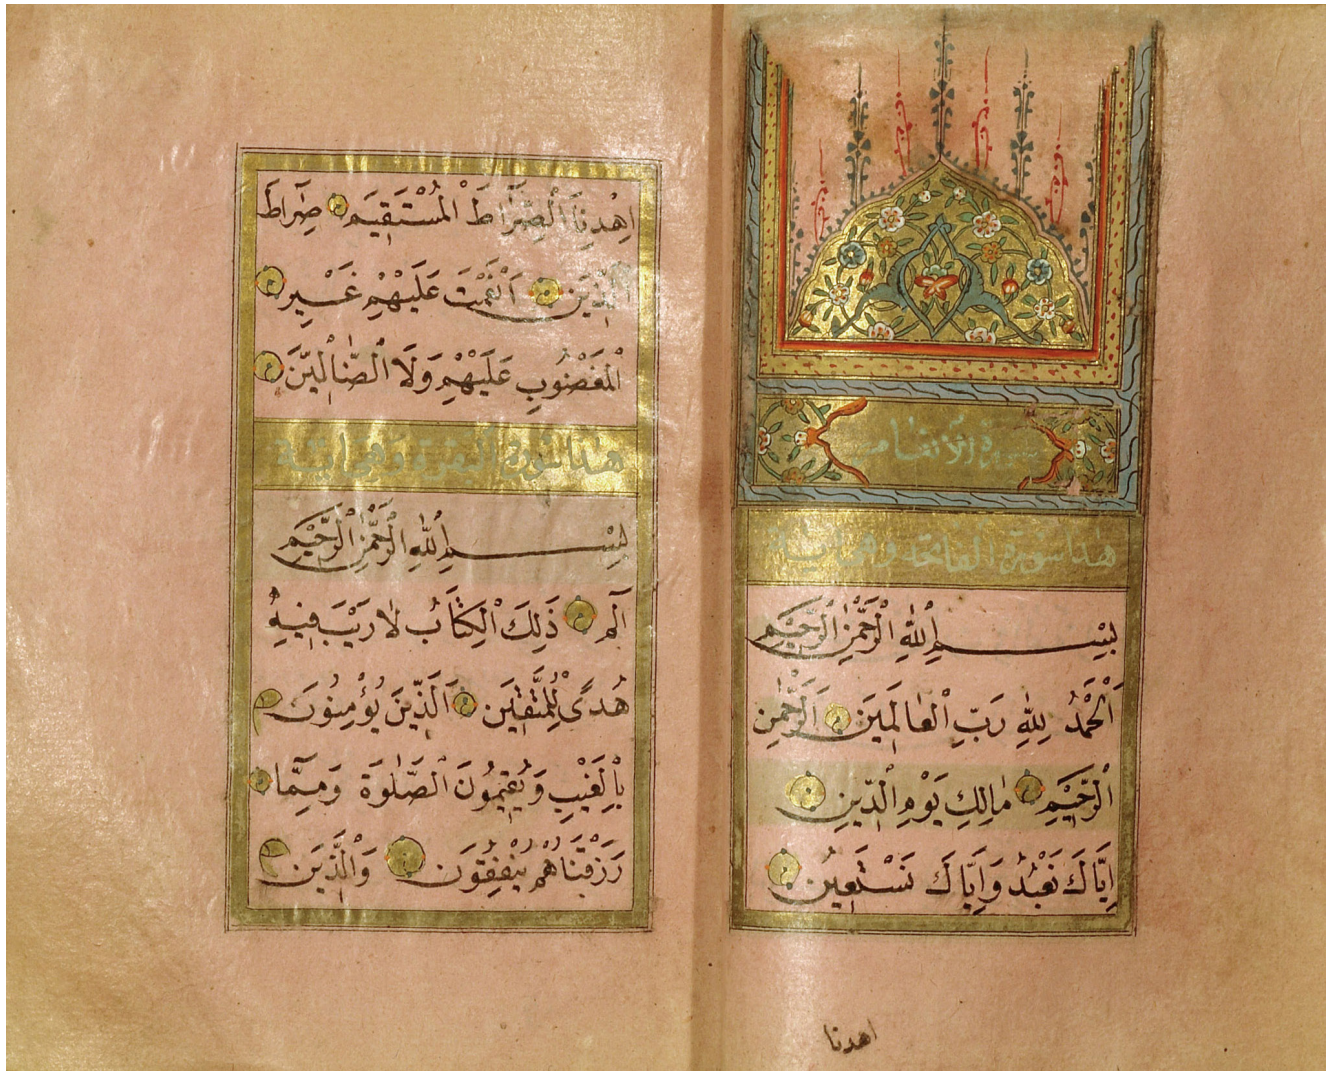 سورة الأنعام
هذا سورة الفاتحة وهي اية
بِسْمِ اللهِ الرَّحْمٰنِ الرَّحِيْمِ
اَلْحَمْدُ لِلهِ رَبِّ الْعَالَمِيَن اَلرَّحْمٰنِ
الرَّحِيْمِ مَالِكِ يَوْمِ الدِّينِ
اِيَّاكَ نَعْبُدُ وَاِيَّاكَ نَسْتَعِينُ
اهدنا
اِهْدِنَا الْصِّرَاطَ الْمُسْتَقِيَم صِرَاطَ
الَّذِيَن اَنْعَمْتَ عَلَيْهِمْ غَيْرِ
الْمَغْضُوبِ عَلَيْهِمْ وَلَا الْضَّالِّيَنَ
هذا سورة البقرة وهي اية
بِسْمِ اللهِ الرَّحْمٰنِ الرَّحِيْمِ
الٓمٓ ذَلِكَ الْكِتَابُ لَا رَيْبَ فِيهِ
هُدًى لِلْمُتَّقِيَن اَلَّذِيَن يُؤْمِنُونَ
بِالْغَيْبِ وَيُقِيمُونَ الْصَّلٰوةَ وَمِمَّا
رَزَقْنَاهُمْ يُنْفِقُونَ وَالَّذِيَن